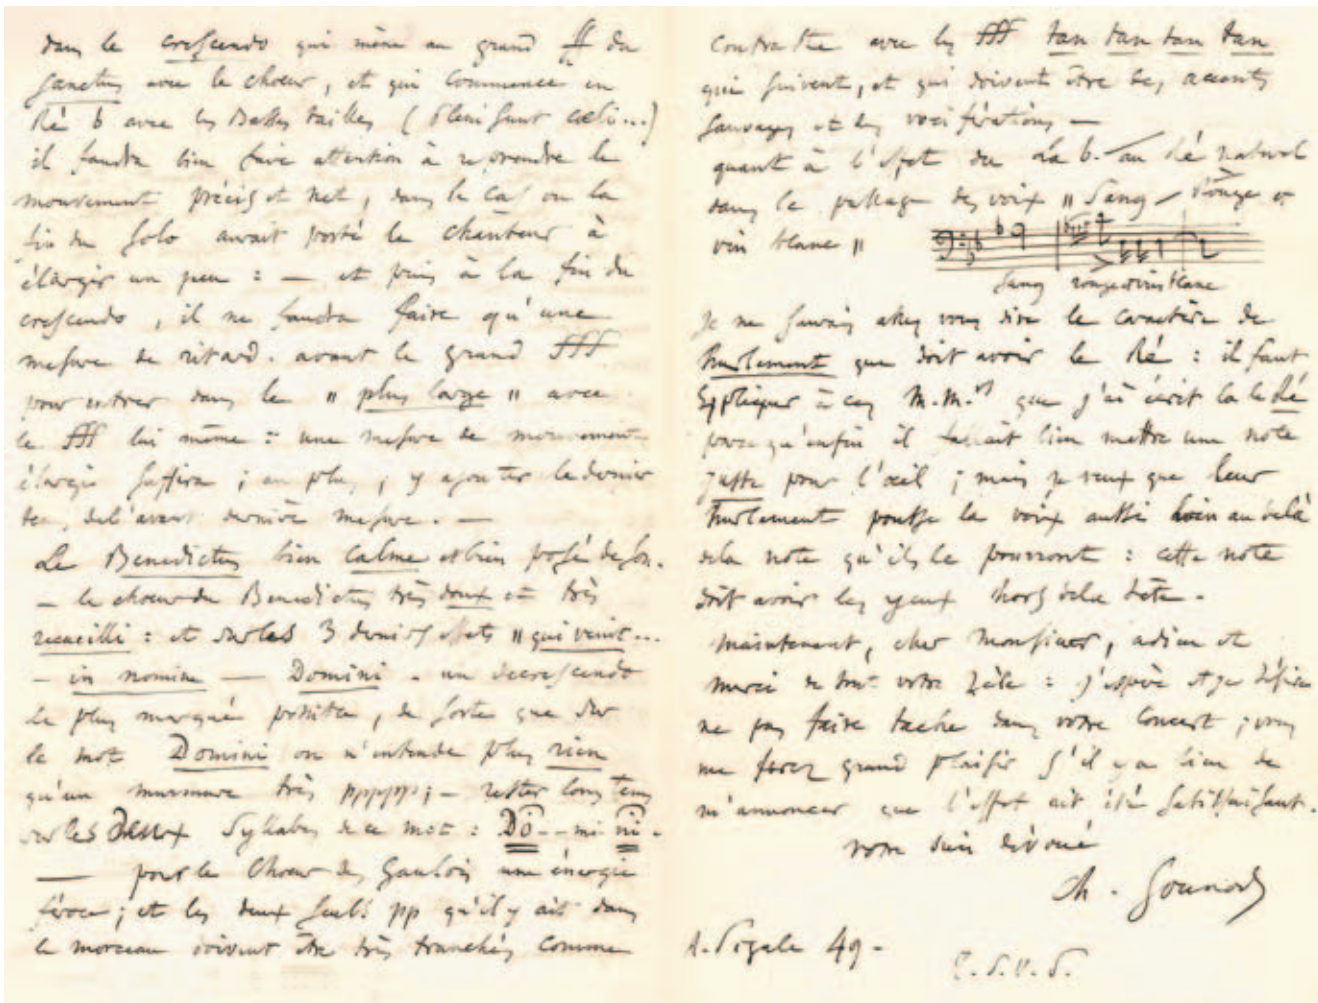 dans le crescendo qui mène au grand ff du
Sanctus avec le chœur, et qui commence en
Ré b avec les Basses tailles (Pleni sunt cœli...)
il faudra bien faire attention à reprendre le
mouvement précis et net, dans le cas ou la
fin du Solo aurait porté le chanteur à
élargir un peu : — et puis à la fin du
crescendo, il ne faudra faire qu'une
mesure de ritard. avant le grand fff
pour entrer dans le " plus large " avec
le fff lui même : une mesure de mouvement
élargie suffira ; au plus, y ajouter le dernier
tems de l'avant dernière mesure. —
Le Benedictus bien calme et bien posé de son.
— le chœur du Benedictus très doux et très
recueilli : et sur les 3 derniers mots " qui venit...
— in nomine — Domini . un decrescendo
le plus marqué possible, de sorte que sur
le mot Domini on n'entende plus rien
qu'un murmure très ppppp ; — rester longtems
sur les Deux Syllabes de ce mot : Do - - mi ni -
— pour le Chœur des Gaulois une énergie
féroce ; et les deux seuls pp qu'il y ait dans
le morceau doivent être très tranchés comme
contraste avec les fff tan tan tan tan
qui suivent, et qui doivent être des accents
sauvages et des vociférations —
quant à l'effet du La b. au Ré naturel
dans le passage des voix " Sang rouge et
vin blanc "
Sang rouge et vin blanc
Je ne saurais assez vous dire le caractère de
hurlement que doit avoir le Ré : il faut
expliquer à ces M.M.rs que j'ai écrit là le Ré
parce qu'enfin il fallait bien mettre une note
juste pour l'œil ; mais je veux que leur
hurlement pousse la voix aussi loin au delà
de la note qu'ils le pourront : cette note
doit avoir les yeux hors de la tête.
maintenant, cher Monsieur, adieu et
merci de tout votre zèle : j'espère et je désire
ne pas faire tache dans votre Concert ; vous
me ferez grand plaisir s'il y a lieu de
m'annoncer que l'effet ait été satisfaisant.
votre bien dévoué
Ch. Gounod
R. Pigale 49 -
T. S. V. P.